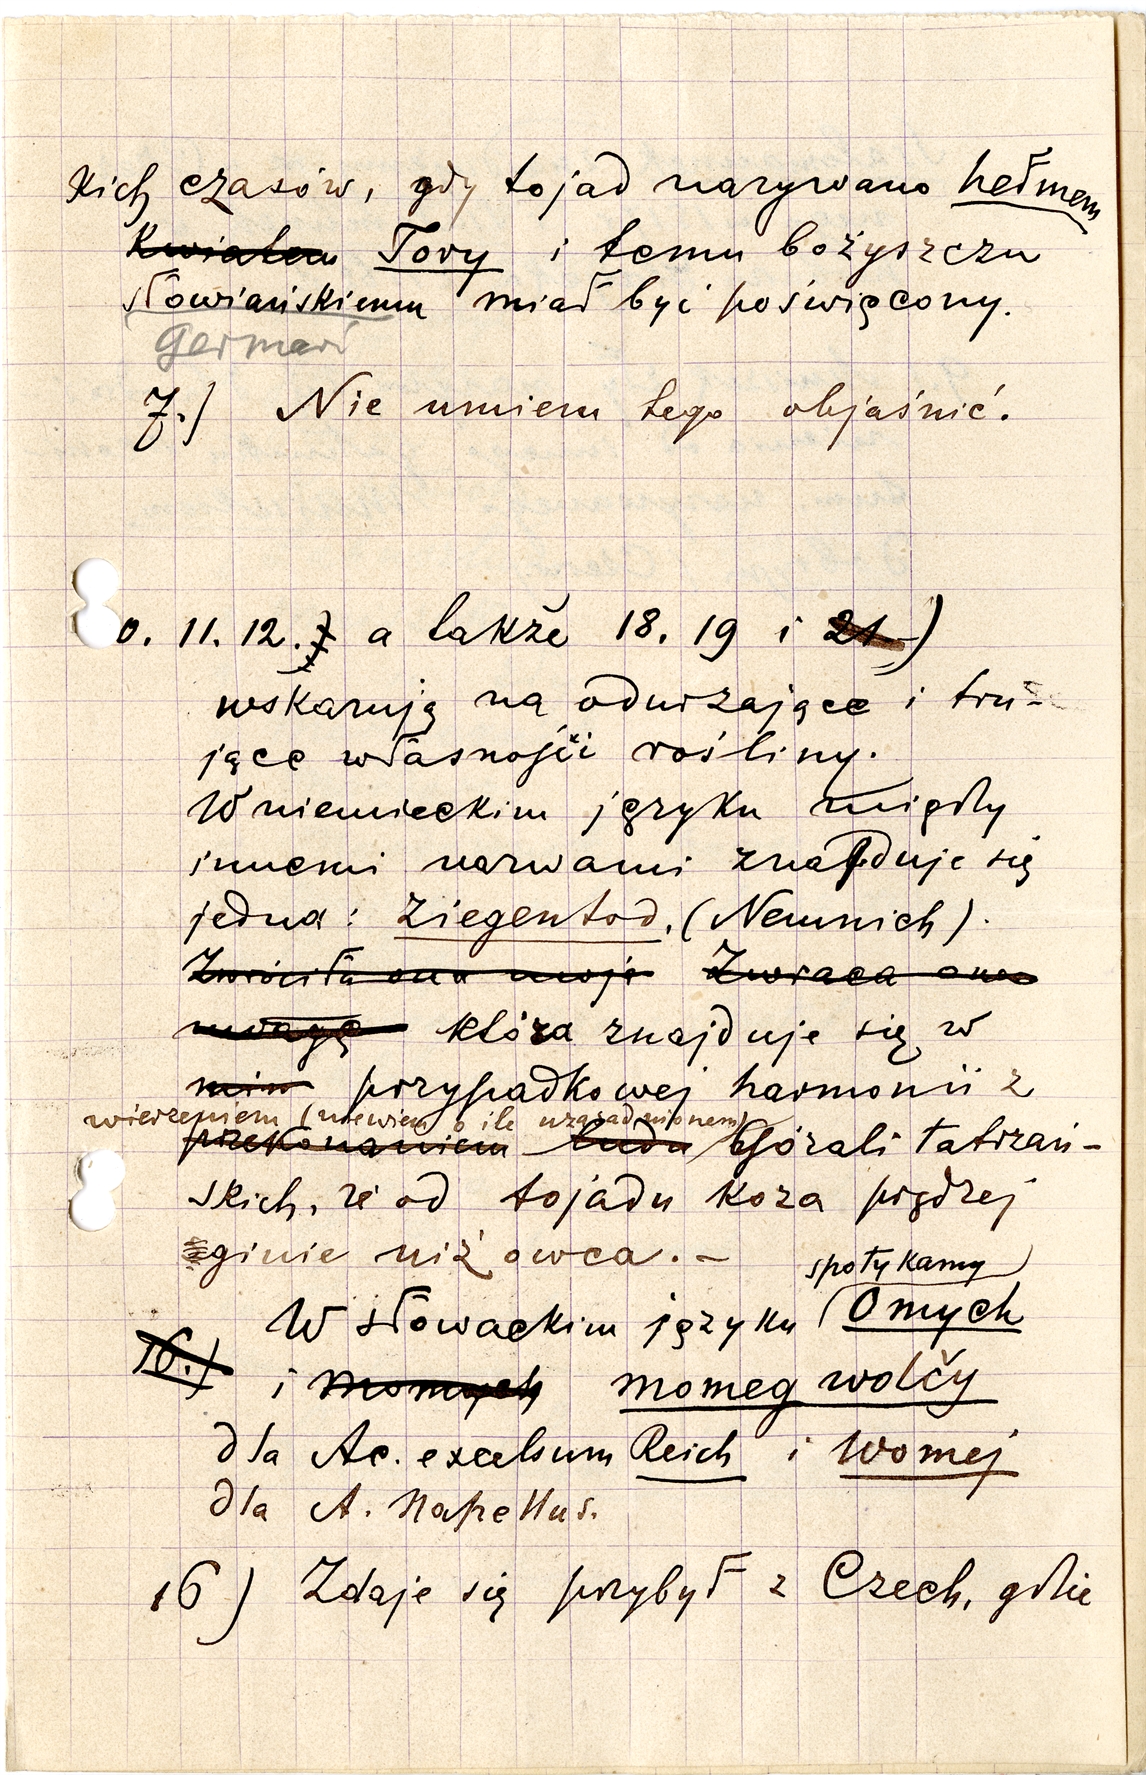 kich czasów, gdy tojad nazywano hełmem
kwiatem Tory i temu bożyszczu
słowiańskiemu miał być poświęcony.
german
7.) Nie umiem tego objaśnić.
0. 11. 12. a także 18. 19 i 21)
wskazują na odurzające i tru-
jące własności rośliny.
W niemieckim języku między
innemi nazwami znajduje się
jedna: Ziegentod. (Nemnich).
Zwróciła ona moje Zwraca ona
uwagę która znajduje się w
przypadkowej harmonii z
wierzeniem (niewiem o ile uzasadnionem)
przekonaniem ludu Górali tatrzań-
skich, że od tojadu koza prędzej
ginie niż owca. –
spotykamy
W słowackim języku Omych
16.) i Momych momeg wolčy
dla Ac. excelsum Reich i womej
dla A. Napellus.
16) Zdaje się przybył z Czech, gdzie